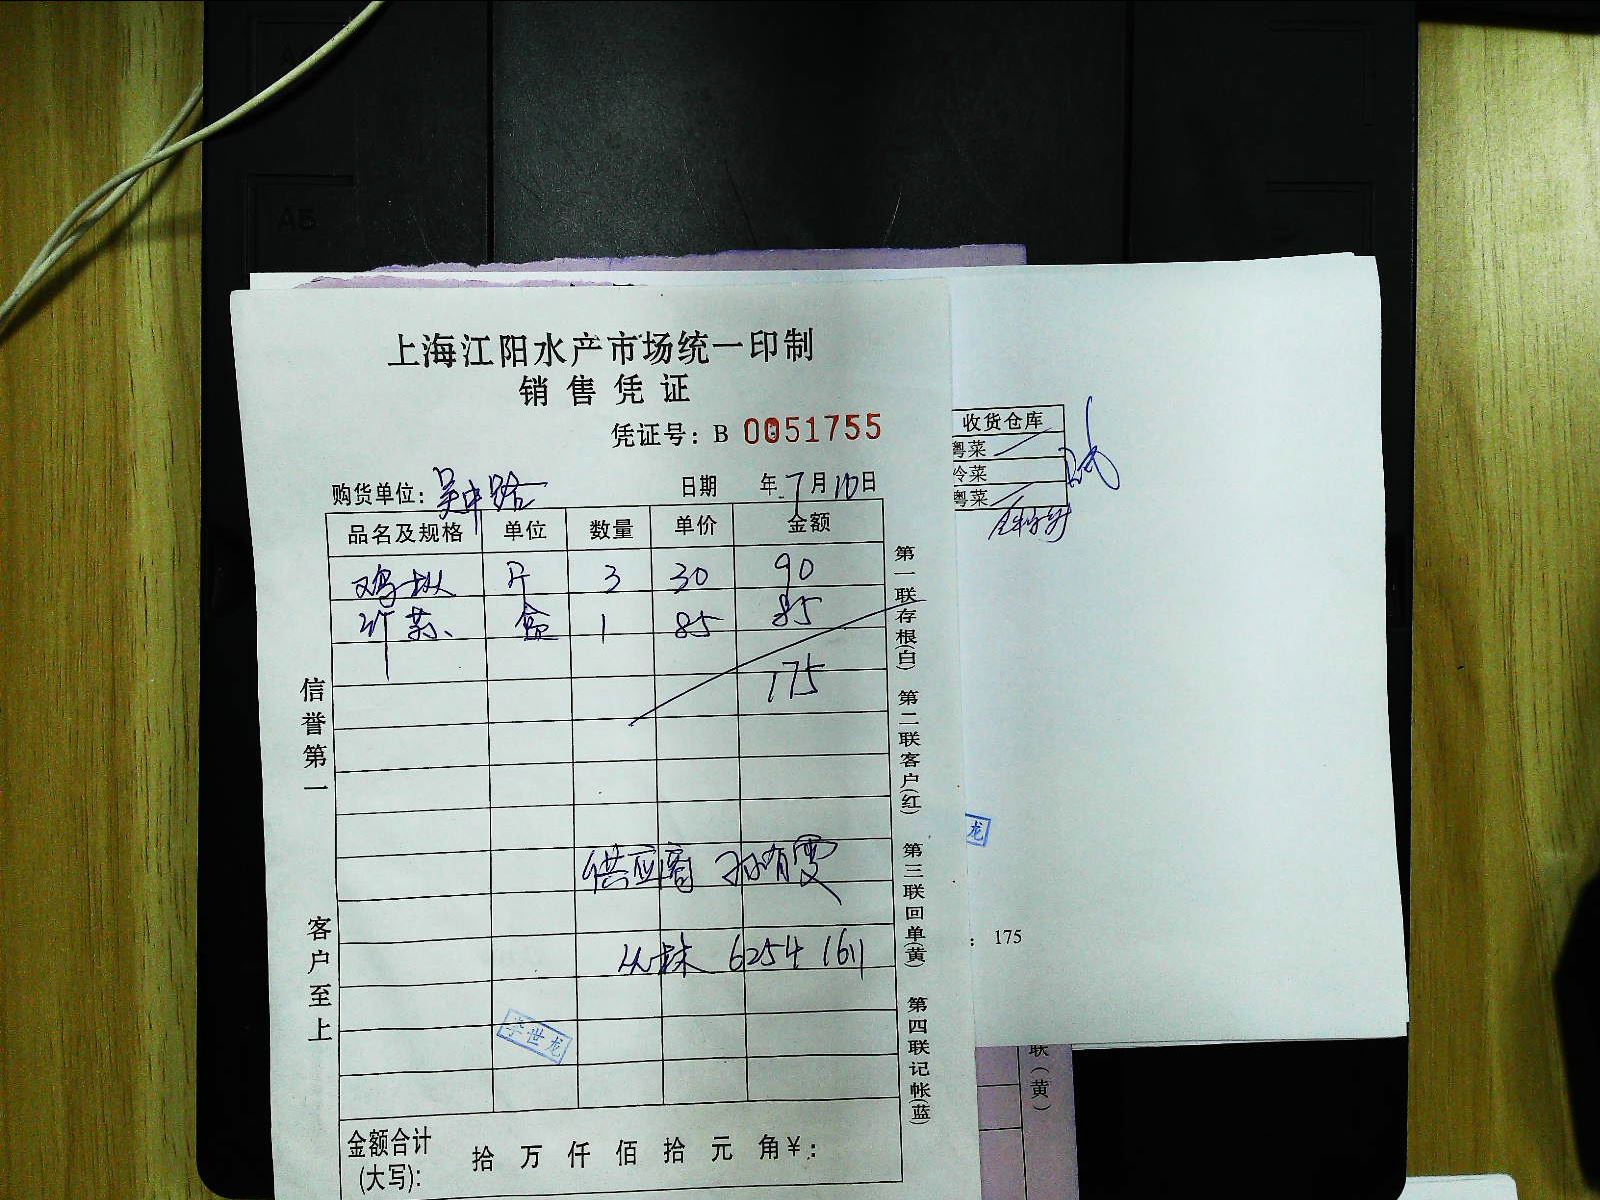 上海江阳水产市场统一印制
销售凭证
凭证号：B 0051755
购货单位：吴中路 日期 年 7月10日
品名及规格 单位 数量 单价 金额
鸡枞 斤 3 30 90
盒 1 85 85
175
供应商 孙有雯
6254 1611
李世龙
金额合计
(大写): 拾 万 仟 佰 拾 元 角 ¥：
信誉第一
客户至上
第一联存根(白)
第二联客户(红)
第三联回单(黄)
第四联记帐(蓝)
收货仓库
粤菜
冷菜
粤菜
龙
：175
联(黄)
A5